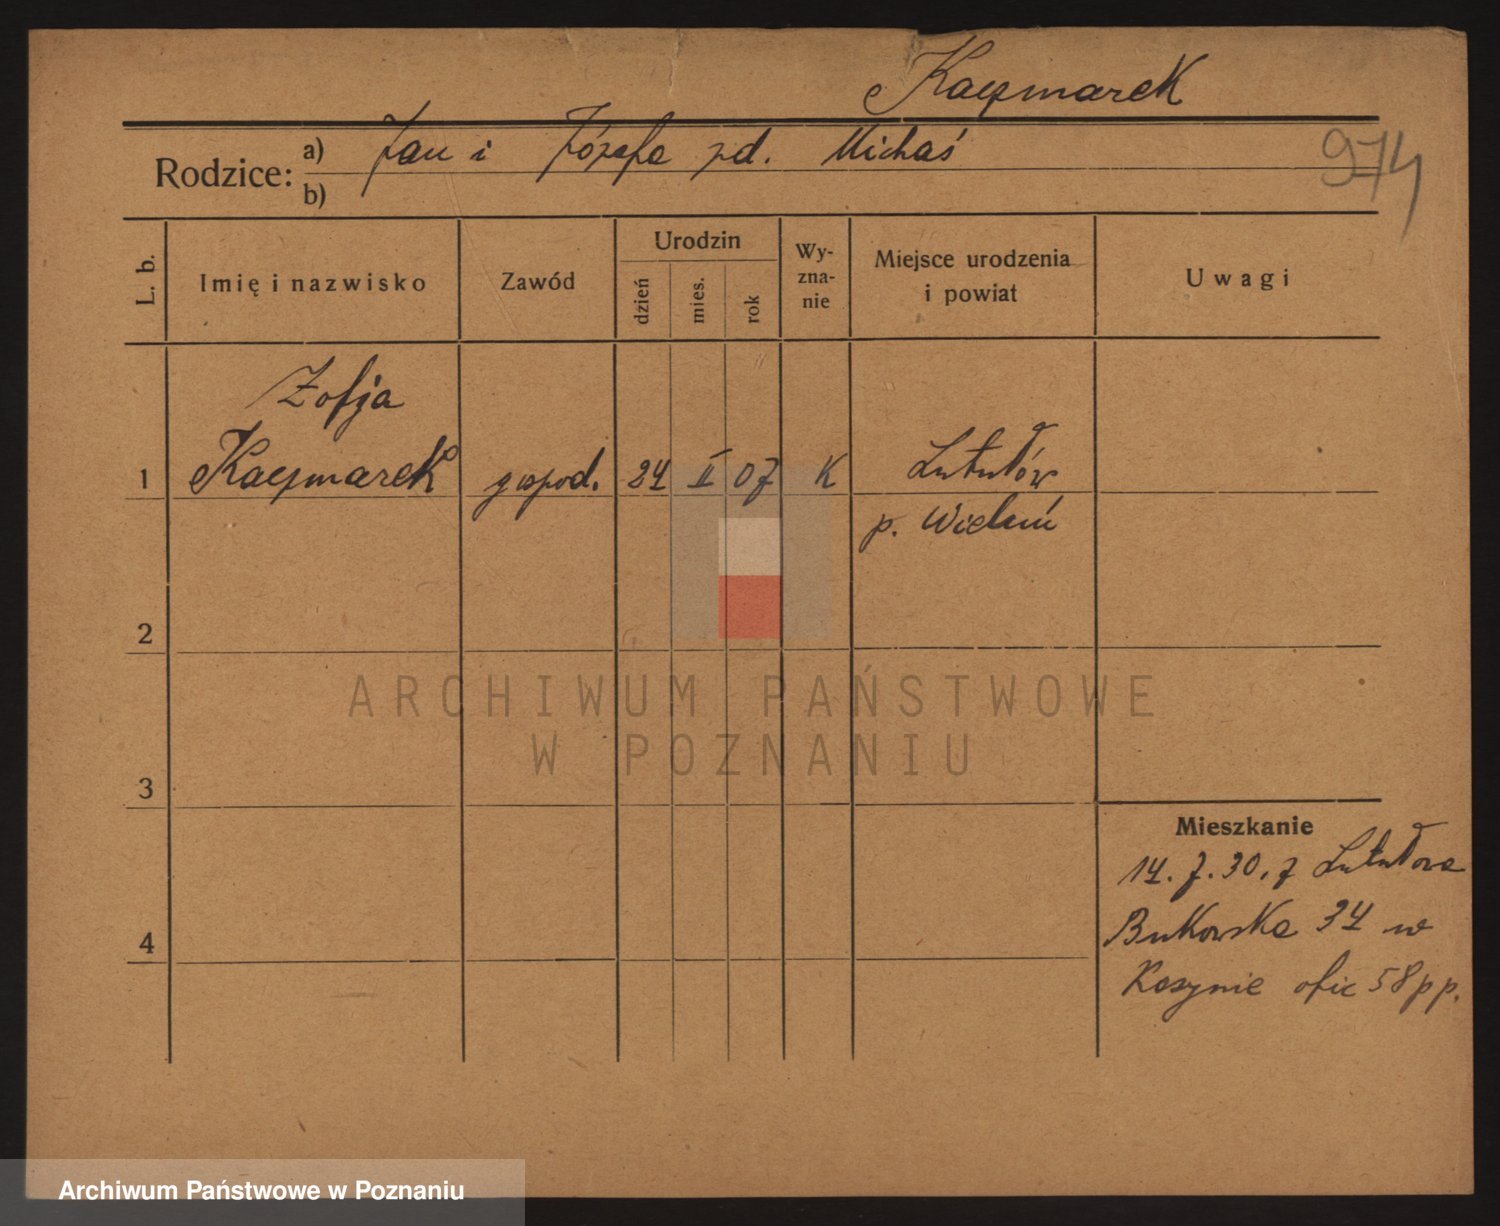 Kaczmarek
974
Rodzice: a) Jan i Józefa zd. Michaś
b)
L. b.
Imię i nazwisko
Zawód
Urodzin
dzień
mies.
rok
Wy-
zna-
nie
Miejsce urodzenia
i powiat
Uwagi
Zofja
1 Kaczmarek gospod. 24 II 07 K Lututów
p. Wieluń
2
3
4
Mieszkanie
14. 7. 30. z Lututowa
Bukowska 34 w
Kasynie ofic 58 pp.
ARCHIWUM PAŃSTWOWE
W POZNANIU
Archiwum Państwowe w Poznaniu